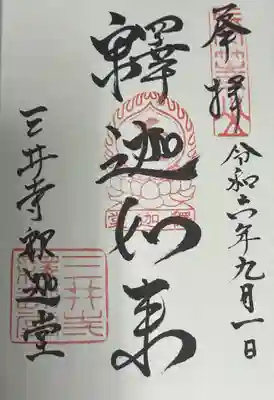 奉拝
令和六年九月一日
釋迦如来
三井寺釈迦堂
釋迦堂